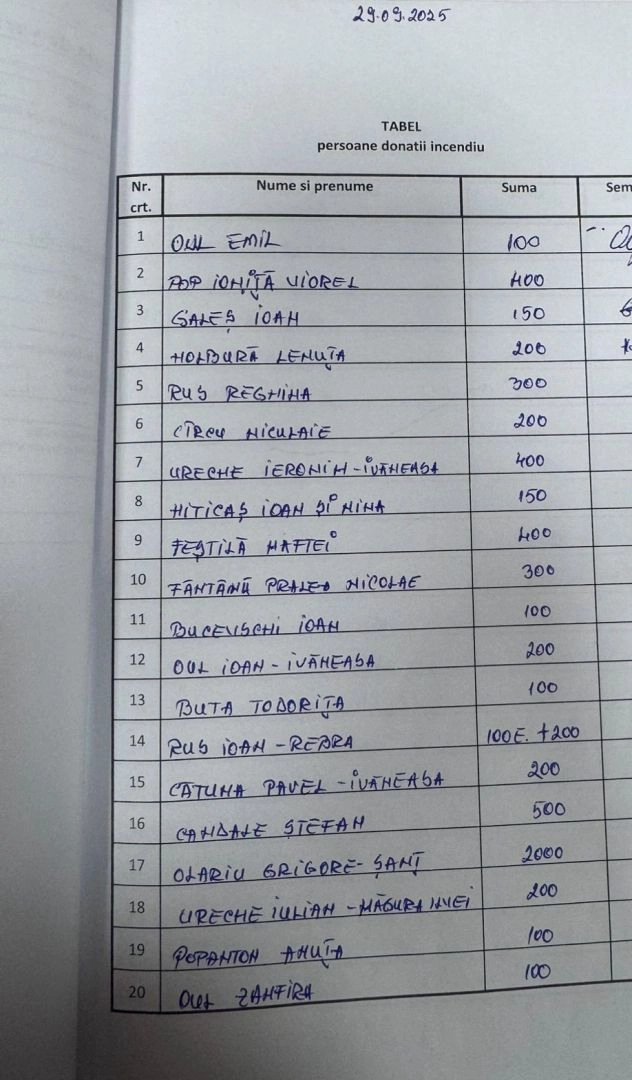 29.09.2025
TABEL
persoane donatii incendiu
Nr. crt. Nume si prenume Suma Sem
1 OUL EMIL 100
2 POP IONIȚĂ VIOREL 400
3 GALEȘ IOAN 150
4 HOLBURĂ LENUȚA 200
5 RUS REGHINA 300
6 CÎRCU NICULAIE 200
7 URECHE IERONIM - IVĂNEASA 400
8 HITICAȘ IOAN ȘI NINA 150
9 FEȘTILĂ MAFTEI 400
10 FÂNTÂNĂ NICOLAE 300
11 BUCEVSCHI IOAN 100
12 OUL IOAN - IVĂNEASA 200
13 BUTA TODORIȚA 100
14 RUS IOAN - REBRA 100E. +200
15 CATUNA PAVEL - IVĂNEASA 200
16 CANDALE ȘTEFAN 500
17 OLARIU GRIGORE - ȘANȚ 2000
18 URECHE IULIAN - MĂGURA ILVEI 200
19 POPANTON ANUȚA 100
20 OUL ZANFIRA 100